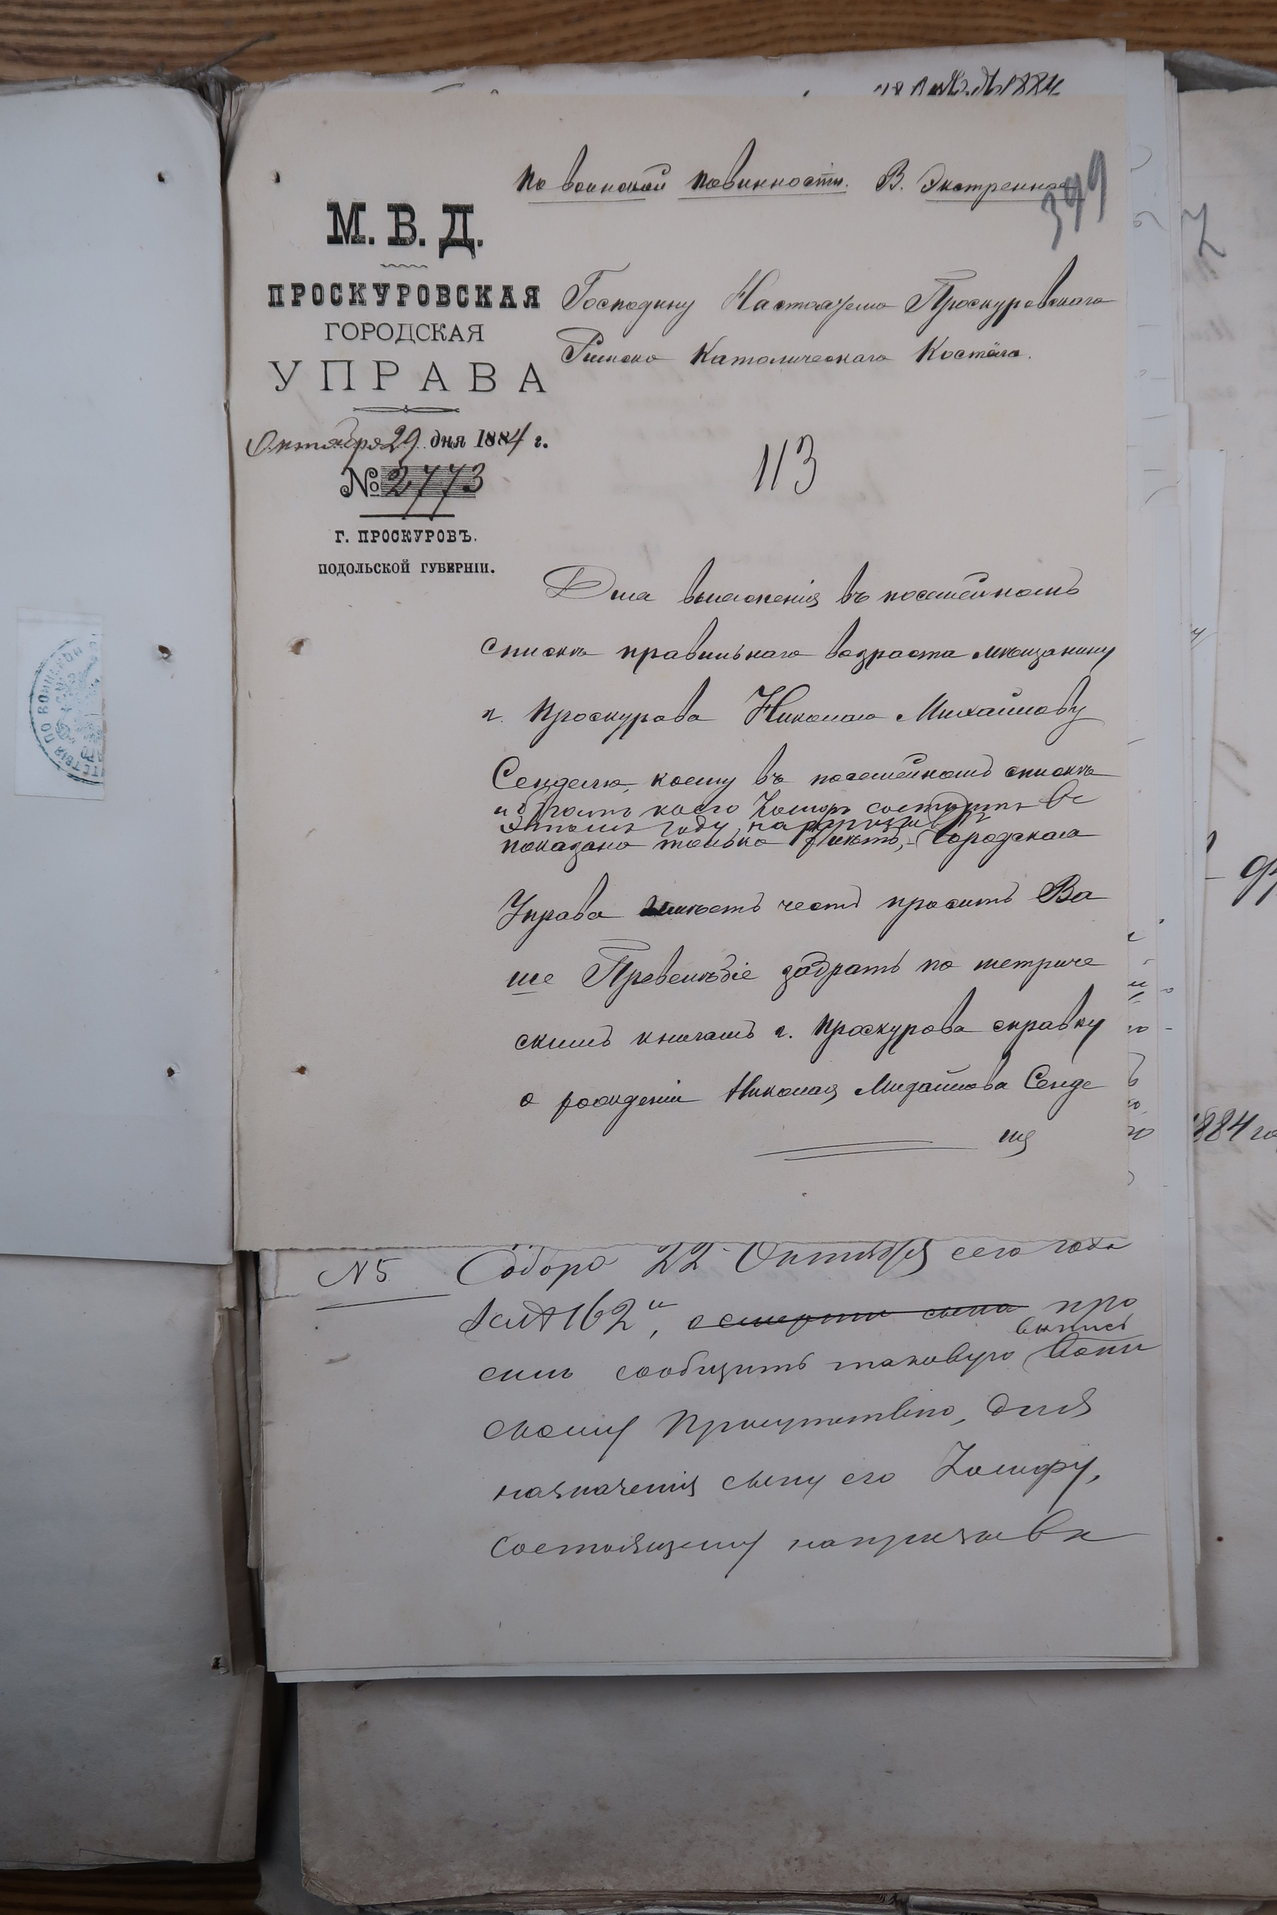 По воинской повинности. В. Экстренное
399
М. В. Д.
ПРОСКУРОВСКАЯ
ГОРОДСКАЯ
УПРАВА
Октября 29 дня 1884 г.
№ 2773
Г. ПРОСКУРОВЪ.
ПОДОЛЬСКОЙ ГУБЕРНІИ.
Господину Настоятелю Проскуровскаго
Римско Католическаго Костёла.
113
Для выясненія въ посемейномъ
списке правильнаго возраста мѣщанину
г. Проскурова Николаю Михайлову
Сенделю, коему въ посемейномъ списке
и братъ коего Іосифъ состоитъ въ
этомъ году на призывѣ
показано только лѣтъ, Городская
Управа имѣетъ честь просить Ва
ше Превелебіе забрать по метриче
скимъ книгамъ г. Проскурова справку
о рожденіи Николая Михайлова Сенде
ля
№ 5
Собора 22 Октября сего года
за № 162, о смерти сына про
силъ сообщить таковую Воин
выпись
скому Присутствію, для
назначенія сыну его Іосифу,
состоящему на призыве въ
1884 го